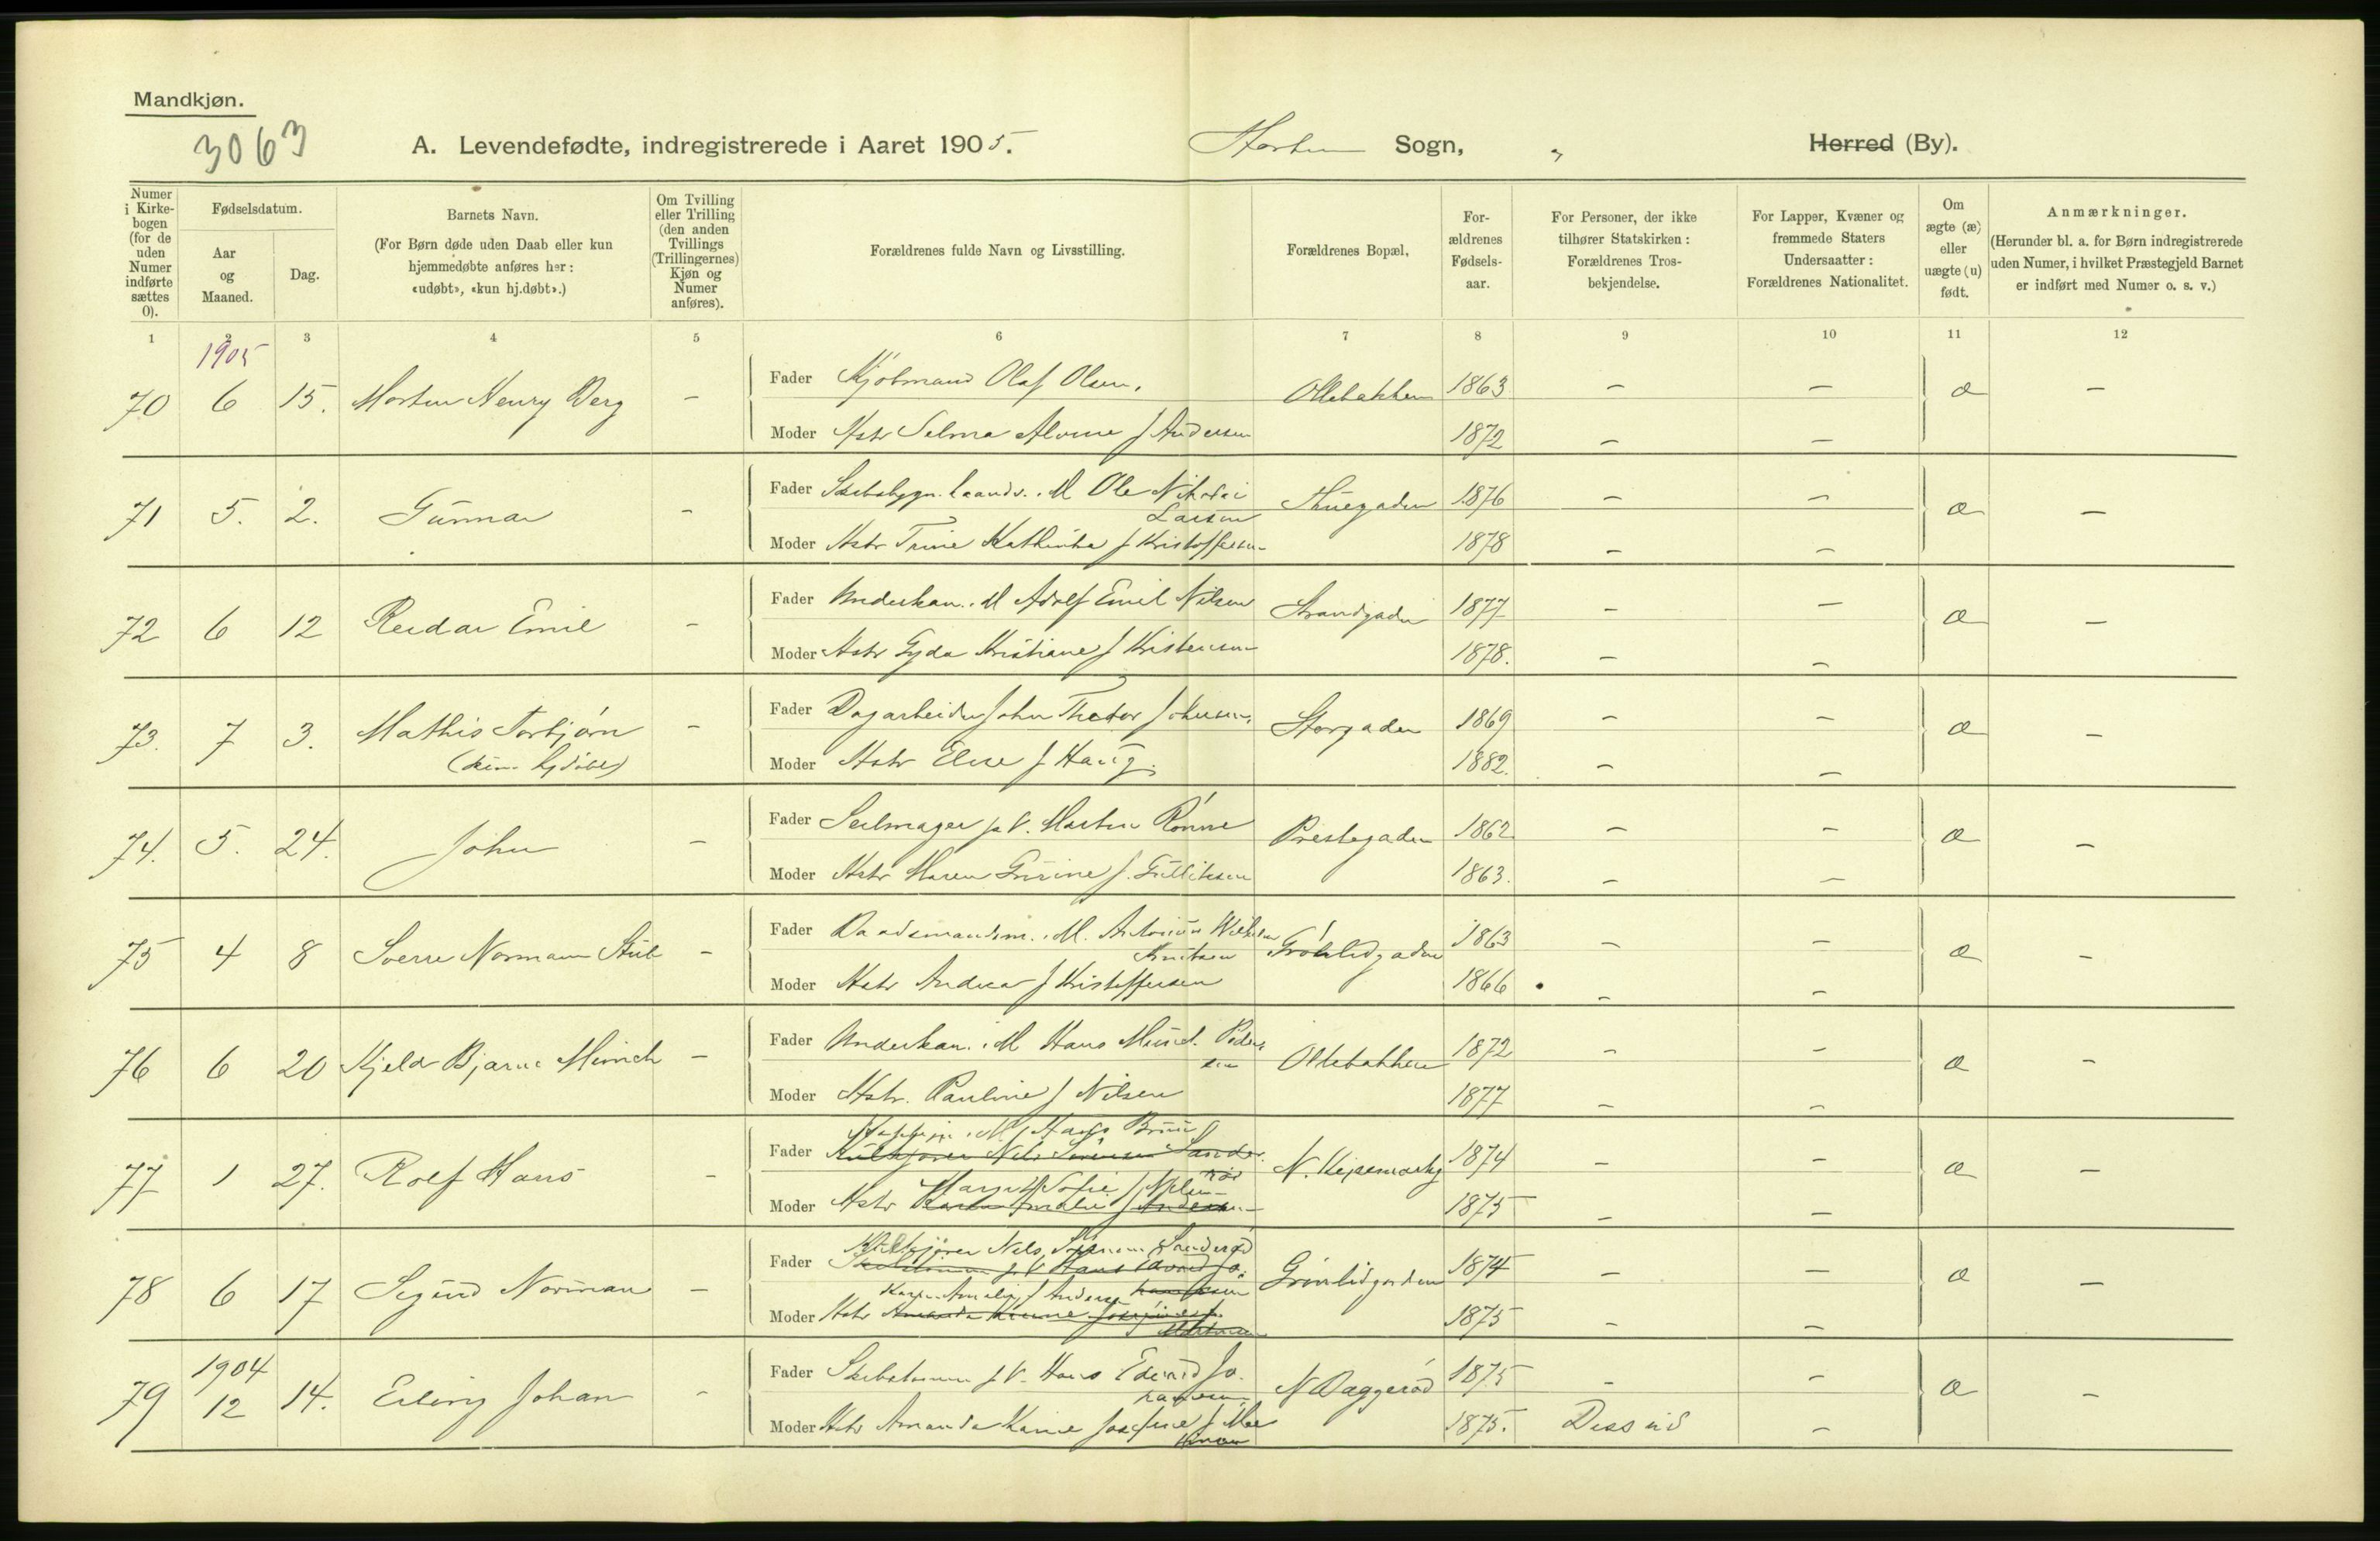 Mandkjøn.
3063
A. Levendefødte, indregistrerede i Aaret 1905. Horten Sogn, „ Herred (By).
Numer i Kirkebogen (for de uden Numer indførte sættes 0).
Fødselsdatum.
Aar og Maaned.
Dag.
Barnets Navn.
(For Børn døde uden Daab eller kun hjemmedøbte anføres her: «udøbt», «kun hj.døbt».)
Om Tvilling eller Trilling (den anden Tvillings (Trillingernes) Kjøn og Numer anføres).
Forældrenes fulde Navn og Livsstilling.
Forældrenes Bopæl,
Forældrenes Fødselsaar.
For Personer, der ikke tilhører Statskirken: Forældrenes Trosbekjendelse.
For Lapper, Kvæner og fremmede Staters Undersaatter: Forældrenes Nationalitet.
Om ægte (æ) eller uægte (u) født.
Anmærkninger.
(Herunder bl. a. for Børn indregistrerede uden Numer, i hvilket Præstegjeld Barnet er indført med Numer o. s. v.)
1 2 3 4 5 6 7 8 9 10 11 12
1905
70 6 15. Morten Henry Berg – Fader Kjøbmand Olaf Olsen. Ollebakken 1863 – – æ –
Moder Hstr Selma Alvine f Andersen 1872 – –
71 5. 2. Gunnar – Fader Ole Nikolai Larsen Thuegaden 1876 – – æ –
Moder Hstr Trine Kathinka f Kristoffersen 1878 – –
72 6 12 Reidar Emil – Fader Underkan. i M Adolf Emil Nilsen Strandgaden 1877 – – æ –
Moder Hstr Gyda Kristiane f Kristensen 1878. – –
73. 7 3. Mathis Torbjørn – Fader Dagarbeider John Theodor Johnsen. Storgaden 1869 – – æ –
(kun hjdøbt)
Moder Hstr Elise f Haug. 1882. – –
74. 5. 24. John – Fader Seilmager p V. Morten Rønne Prestegaden 1862 – – æ –
Moder Hstr Maren Gurine f. Gulliksen 1863. – –
75 4 8 Sverre Normann Stub – Fader Baadsmandsm. i M. Antonius Wilhelm Knutsen Grønligaden 1863 – – æ –
Moder Hstr Andrea f Kristoffersen 1866 – –
76 6 20 Kjeld Bjarne Munch – Fader Underkan. i M Hans Pedersen Ollebakken 1872 – – æ –
Moder Hstr. Pauline f Nilsen 1877 – –
77 1 27. Rolf Hans – Fader i M Hans Bruu
Kulkjører Nils Sørensen Sanderød 1874 – – æ –
Margit Sofie f Nilsen
Moder Hstr Karen Amalie f Andersen 1875 – –
78 6 17 Sigurd Norman – Fader Kulkjører Nils Sørensen Sanderød
Skibstømm p V Hans Edvard Johannesen 1874 – – æ –
Karen Amalie f Andersen
Moder Hstr Amanda Karine Josefine f. 1875 – –
1904
79 12 14. Erling Johan – Fader Skibstømm p V. Hans Edvard Johannesen N Baggerød 1875 – – æ –
Moder Hstr Amanda Karine Josefine f 1875. –